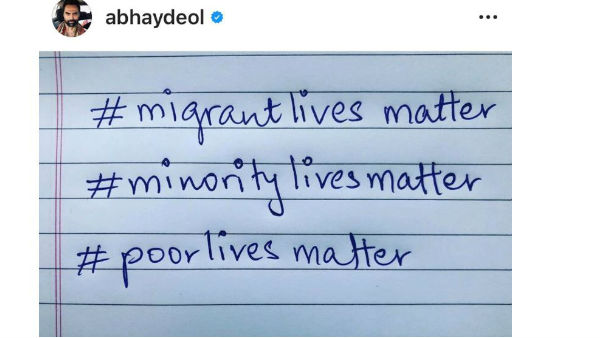 abhaydeol
# migrant lives matter
# minority lives matter
# poor lives matter